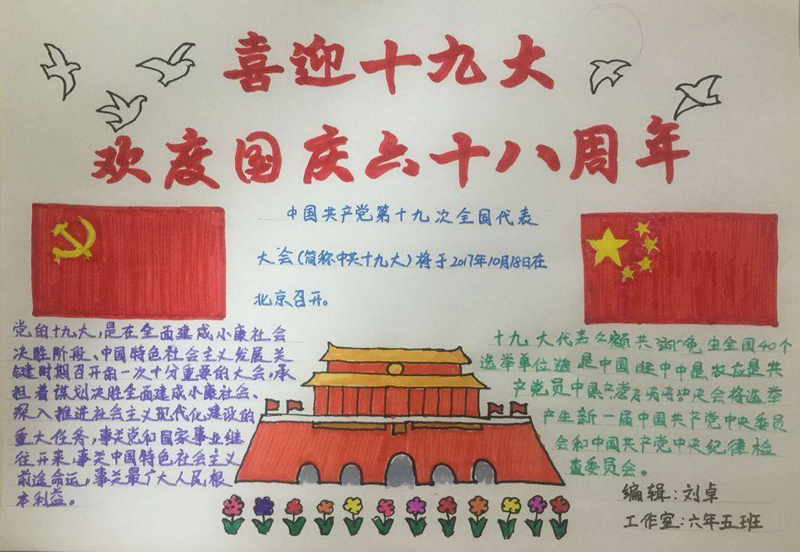 喜迎十九大
欢度国庆六十八周年
中国共产党第十九次全国代表
大会(简称中共十九大)将于2017年10月18日在
北京召开。
党的十九大,是在全面建成小康社会
决胜阶段、中国特色社会主义发展关
键时期召开的一次十分重要的大会,承
担着谋划决胜全面建成小康社会、
深入推进社会主义现代化建设的
重大任务,事关党和国家事业继
往开来,事关中国特色社会主义
前途命运,事关最广大人民根
本利益。
十九大代表名额共 生全国40个
选举单位选 是中国 中 是 共
产党员中 会将选举
产生新一届中国共产党中央委员
会和中国共产党中央纪律检
查委员会。
编辑:刘卓
工作室:六年五班